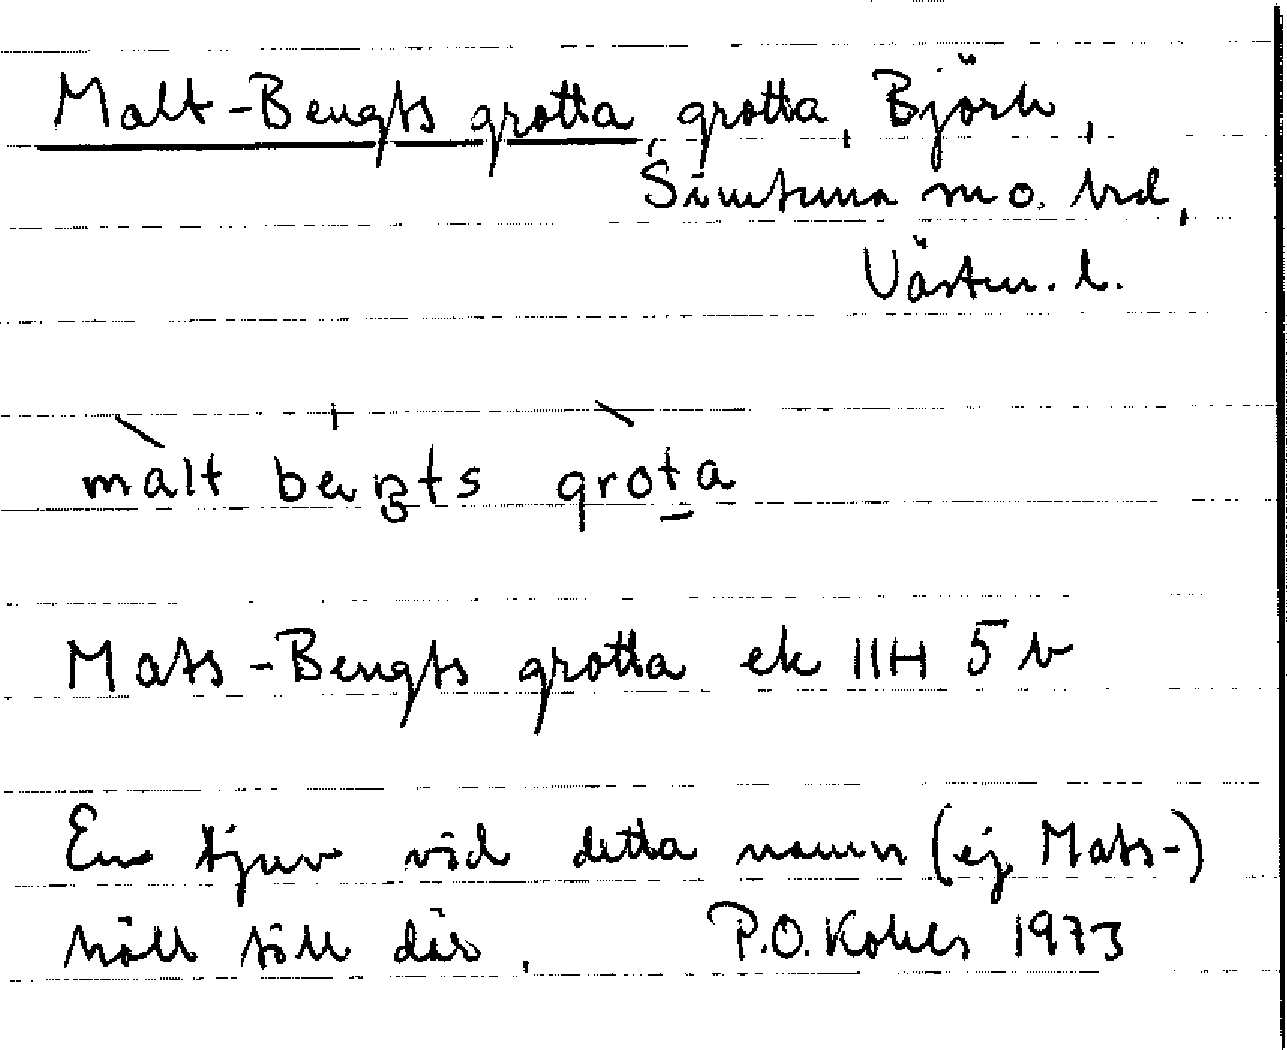 Malt-Bengts grotta, grotta, Björk,
Simtuna sn o. hd,
Västm. l.
malt beŋts grota
Mats-Bengts grotta ek 11H 5b
En tjuv vid detta namn (ej Mats-)
höll till där. P.O. Kohls 1973